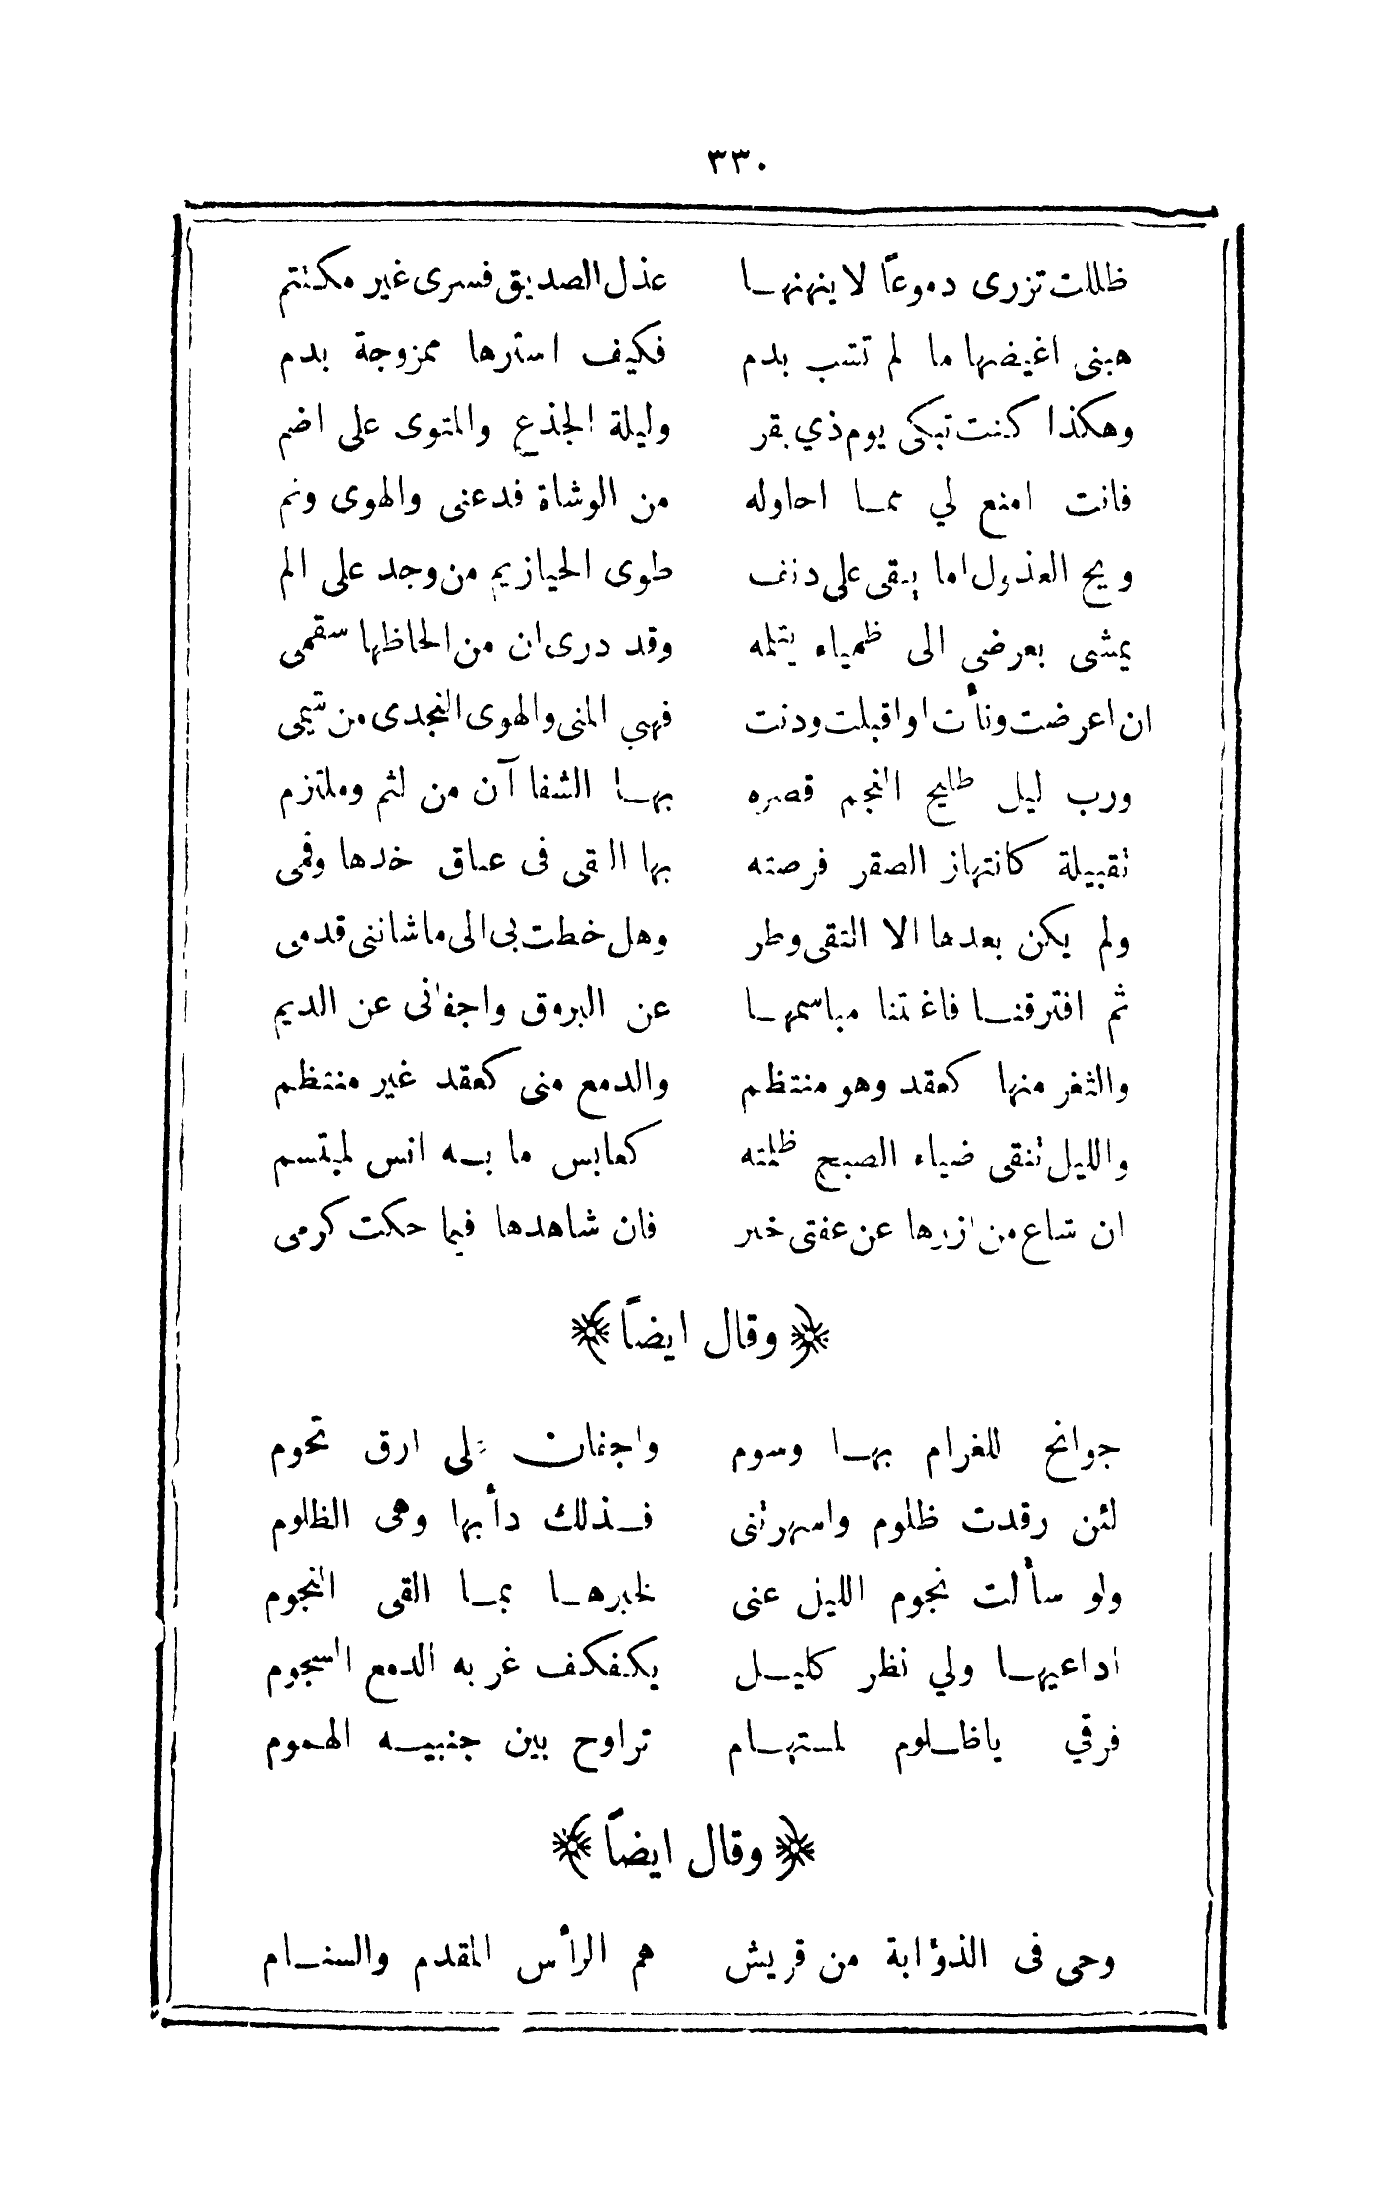 ٣٣٠
ظللت تزرى دموعًا لا ينهنهـا عذل الصديق فسرى غير مكتتم
هبنى اغيضها ما لم تشب بدم فكيف استرها ممزوجة بدم
وهكذا كنت تبكى يوم ذي بقر وليلة الجذع والمتوى على اضم
فانت امنع لي ممـا احاوله من الوشاة فدعنى والهوى ونم
ويح العذول اما يبقى على دنف طوى الحيازيم من وجد على الم
يمشى بعرضى الى ظمياء يثلمه وقد درى ان من الحاظها سقمى
ان اعرضت ونأت او اقبلت ودنت فهى المنى والهوى النجدى من شيمى
ورب ليل طليح النجم قصره بهـا الشفا آن من لثم وملتزم
تقبيلة كانتهاز الصقر فرصته بها القى فى عناق خدها وفمى
ولم يكن بعدها الا التقى وطر وهل خطت بى الى ما شاننى قدمى
ثم افترقنـا فاغنتنا مباسمهـا عن البروق واجفانى عن الديم
والثغر منها كعقد وهو منتظم والدمع منى كعقد غير منتظم
والليل تنقى ضياء الصبح ظلمته كعابس ما بـه انس لمبتسم
ان شاع من ازرها عن عفتى خبر فان شاهدها فيما حكت كرمى
﴿ وقال ايضاً ﴾
جوانح للغرام بهـا وسوم واجفان على ارق تحوم
لئن رقدت ظلوم واسهرتنى فـذلك دأبها وهى الظلوم
ولو سألت نجوم الليل عنى لخبرهـا بمـا القى النجوم
اداعيهـا ولي نظر كليـل يكفكف غربه الدمع السجوم
فرقي ياظـلوم لمستهـام تراوح بين جنبيـه الهموم
﴿ وقال ايضاً ﴾
وحى فى الذؤابة من قريش هم الرأس المقدم والسنـام